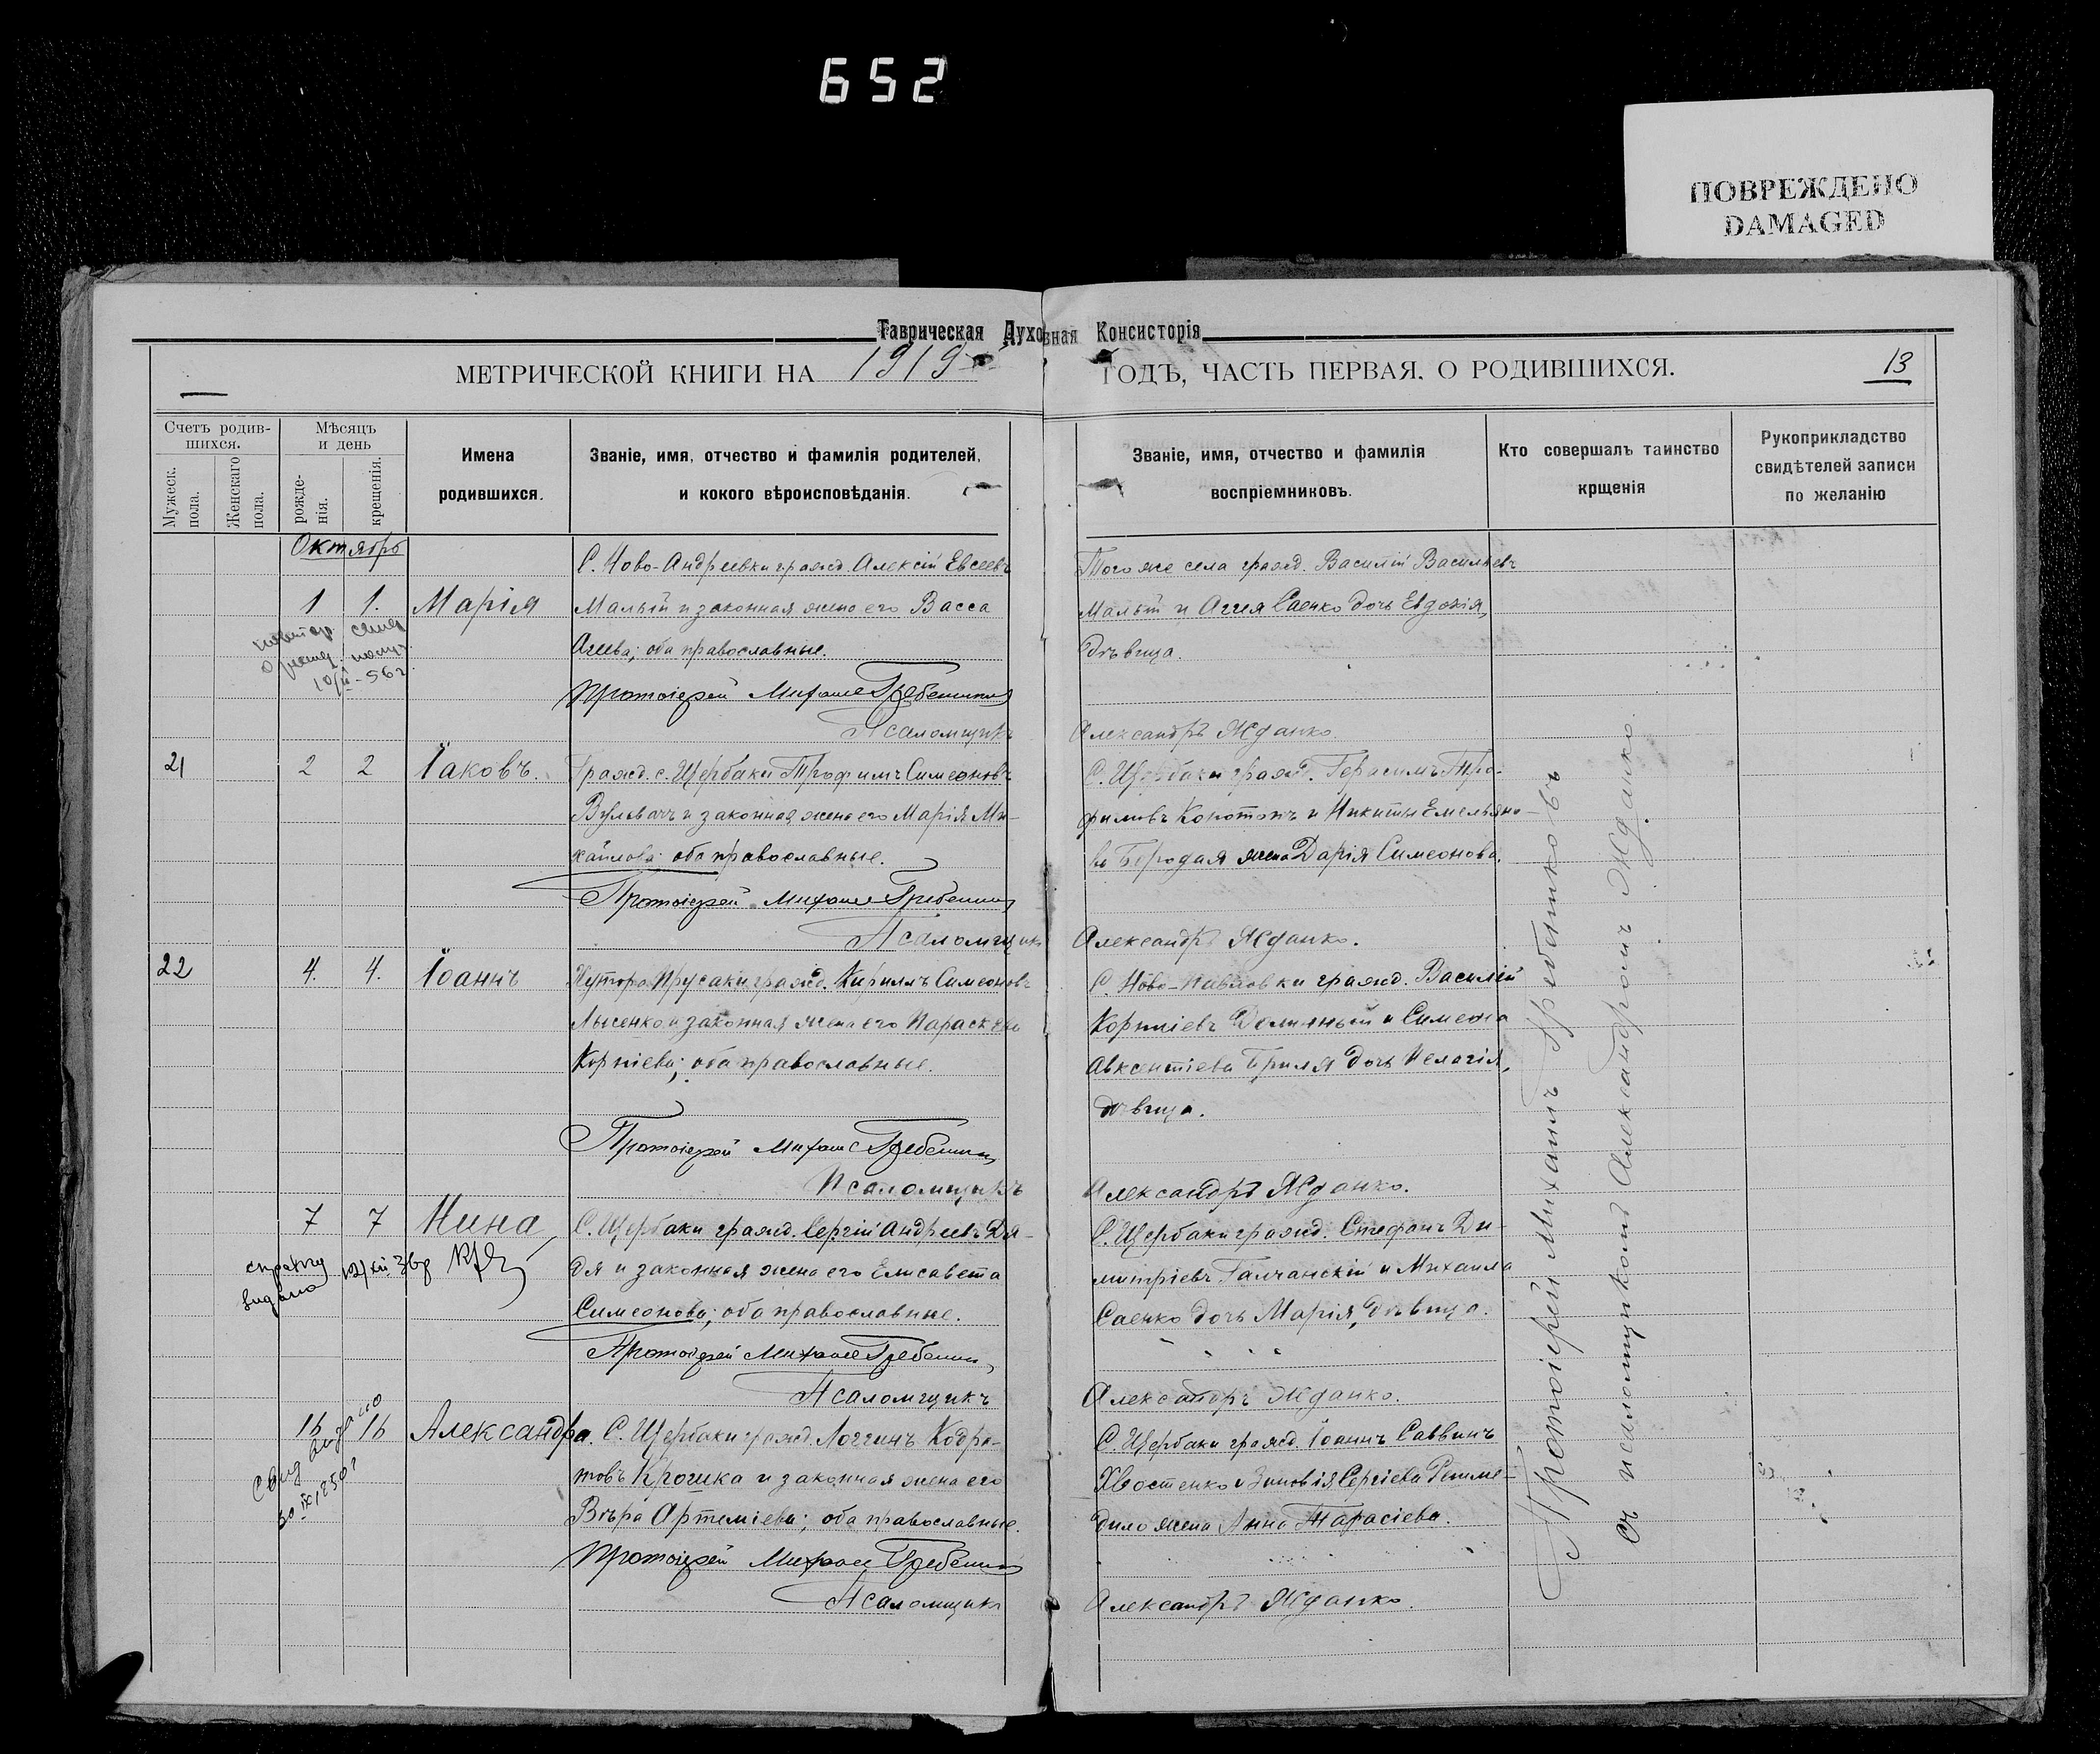 652
ПОВРЕЖДЕНО
DAMAGED
Таврическая Духовная Консисторія
МЕТРИЧЕСКОЙ КНИГИ НА 1919 ГОДЪ, ЧАСТЬ ПЕРВАЯ, О РОДИВШИХСЯ.
13
Счетъ родив-
шихся.
Мужеск.
пола.
Женскаго
пола.
Мѣсяцъ
и день
рожде-
нія.
крещенія.
Имена
родившихся.
Званіе, имя, отчество и фамилія родителей,
и кокого вѣроисповѣданія.
Званіе, имя, отчество и фамилія
воспріемниковъ.
Кто совершалъ таинство
крщенія
Рукоприкладство
свидѣтелей записи
по желанію
Октябрь
1 1. Марія
10/II-56г
С. Ново-Андреевки гражд. Алексій Евсеевъ
Малый и законная жена его Васса
Агиева; оба православные.
Протоіерей Михаил Гребенников
Псаломщикъ
Того же села гражд. Василій Васильевъ
Малый и Агия Саенко дочь Евдокія,
дѣвица.
Александръ Жданко
21 2 2 Іаковъ.
Гражд. с. Щербаки Трофимъ Симеоновъ
и законная жена его Марія Ми-
хаилова; оба православные.
Протоіерей Михаил Гребенников
Псаломщикъ
С. Щербаки гражд. Герасимъ Тро-
фимовъ Конотопъ и Никиты Емельяно-
ва Бородая жена Дарія Симеонова.
Александръ Жданко.
22 4. 4. Іоаннъ
Хутора Прусаки гражд. Кириллъ Симеоновъ
Лысенко и законная жена его Параскева
Корніева; оба православные.
Протоіерей Михаил Гребенников
Псаломщикъ
С. Ново-Павловки гражд. Василій
Корніевъ и Симеона
Авксентіева Бриля дочь Пелагія,
дѣвица.
Александръ Жданко.
7 7 Нина
справку видано 12/XII 3бр
С. Щербаки гражд. Сергій Андреевъ Дя-
дя и законная жена его Елисавета
Симеонова; оба православные.
Протоіерей Михаил Гребенников
Псаломщикъ
С. Щербаки гражд. Стефанъ Ди-
митріевъ Галчанскій и Михаила
Саенко дочь Марія, дѣвица.
Александръ Жданко.
16 16 Александра.
Свид видано
30 IX 1950г
С. Щербаки гражд. Логгинъ Кодра-
товъ Крошка и законная жена его
Вѣра Артеміева; оба православные.
Протоіерей Михаил Гребенников
Псаломщикъ
С. Щербаки гражд. Іоаннъ Саввинъ
Хвостенко и Зиновія Сергіева Решме-
дило жена Анна Тарасіева.
Александръ Жданко.
Протоіерей Михаилъ Гребенниковъ
съ псаломщикомъ Александромъ Жданко.